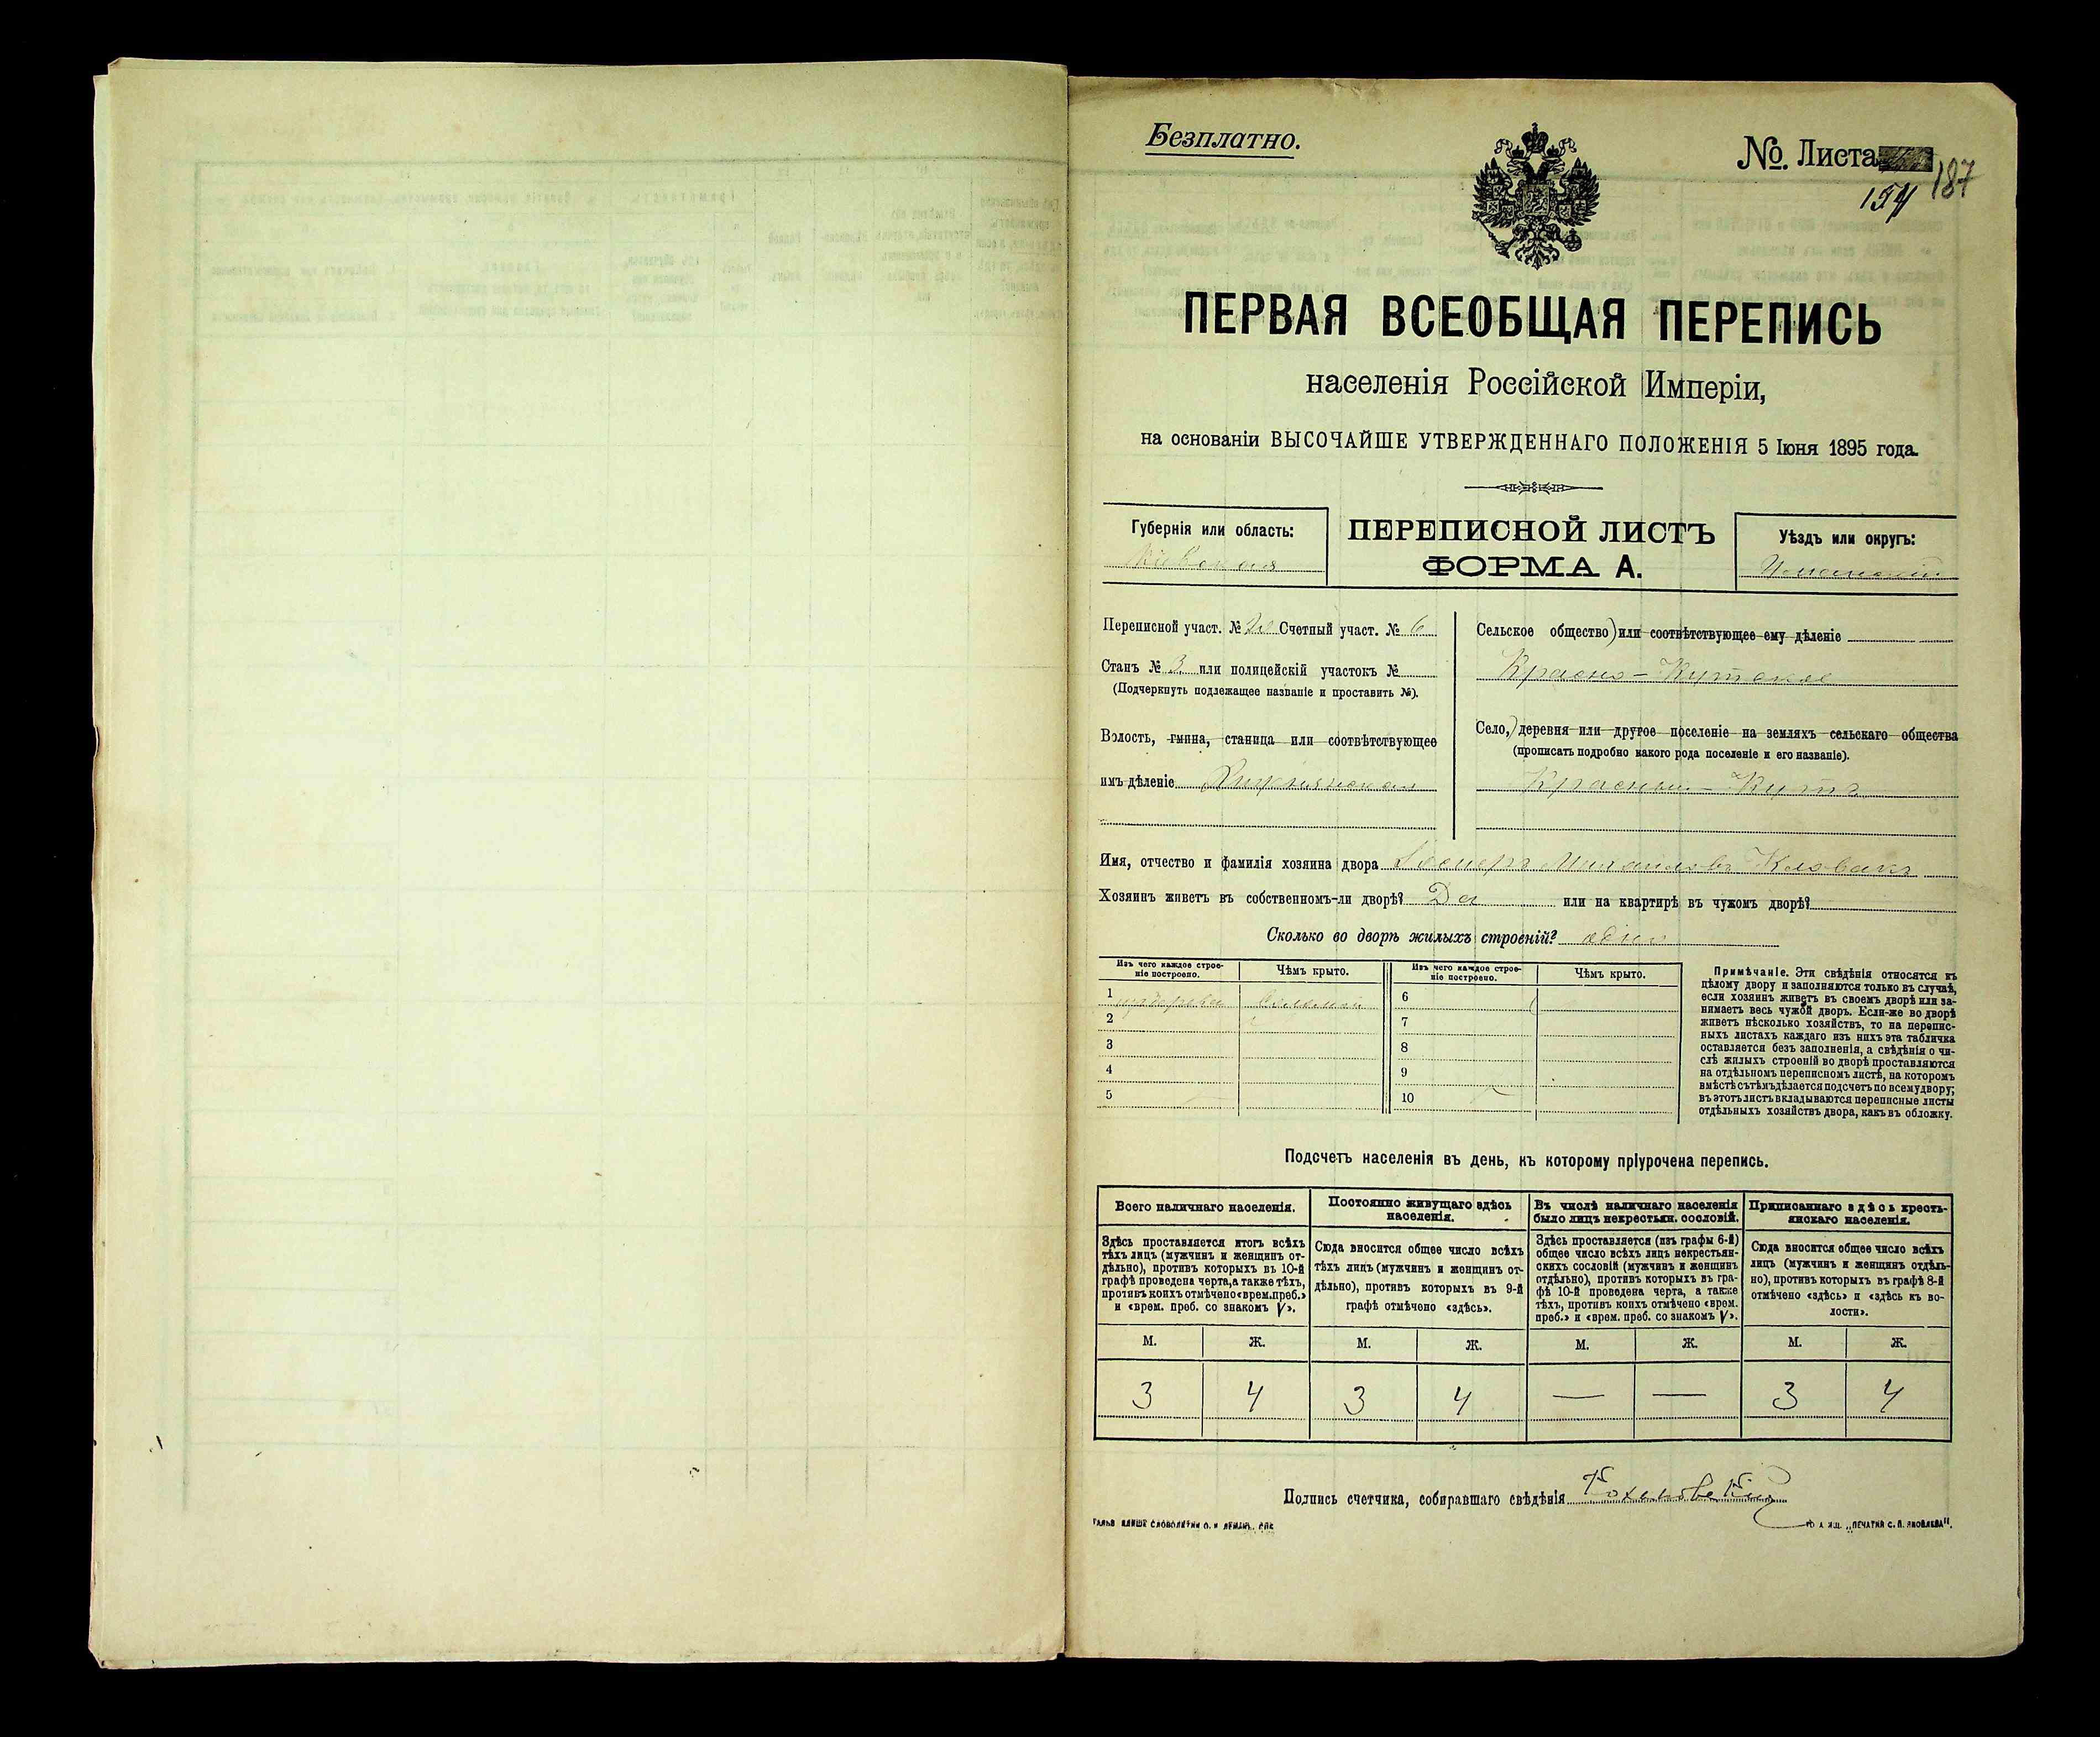 Безплатно.
№ Листа
154 187
ПЕРВАЯ ВСЕОБЩАЯ ПЕРЕПИСЬ
населенія Россійской Имперіи,
на основаніи ВЫСОЧАЙШЕ УТВЕРЖДЕННАГО ПОЛОЖЕНІЯ 5 Іюня 1895 года.
Губернія или область:
Кіевская
ПЕРЕПИСНОЙ ЛИСТЪ
ФОРМА А.
Уѣздъ или округъ:
Уманскій
Переписной участ. № Счетный участ. № 6
Станъ № 3 или полицейскій участокъ №
(Подчеркнуть подлежащее названіе и проставить №).
Волость, гмина, станица или соотвѣтствующее
имъ дѣленіе
Сельское общество) или соотвѣтствующее ему дѣленіе
Красно-Кутское
Село,) деревня или другое поселеніе на земляхъ сельскаго общества
(прописать подробно какого рода поселеніе и его названіе).
Красный-Кутъ
Имя, отчество и фамилія хозяина двора
Хозяинъ живетъ въ собственномъ-ли дворѣ? Да или на квартирѣ въ чужомъ дворѣ?
Сколько во дворѣ жилыхъ строеній? одно
Изъ чего каждое строе-
ніе построено.
Чѣмъ крыто.
Изъ чего каждое строе-
ніе построено.
Чѣмъ крыто.
1 изъ дерева Соломой 6
2 7
3 8
4 9
5 10
Примѣчаніе. Эти свѣдѣнія относятся къ
цѣлому двору и заполняются только въ случаѣ,
если хозяинъ живетъ въ своемъ дворѣ или за-
нимаетъ весь чужой дворъ. Если-же во дворѣ
живетъ нѣсколько хозяйствъ, то на перепис-
ныхъ листахъ каждаго изъ нихъ эта табличка
оставляется безъ заполненія, а свѣдѣнія о чи-
слѣ жилыхъ строеній во дворѣ проставляются
на отдѣльномъ переписномъ листѣ, на которомъ
вмѣстѣ съ тѣмъ дѣлается подсчетъ по всему двору;
въ этотъ листъ вкладываются переписные листы
отдѣльныхъ хозяйствъ двора, какъ въ обложку.
Подсчетъ населенія въ день, къ которому пріурочена перепись.
Всего наличнаго населенія.
Здѣсь проставляется итогъ всѣхъ
тѣхъ лицъ (мужчинъ и женщинъ от-
дѣльно), противъ которыхъ въ 10-й
графѣ проведена черта, а также тѣхъ,
противъ коихъ отмѣчено «врем. преб.»
и «врем. преб. со знакомъ V».
Постоянно живущаго здѣсь
населенія.
Сюда вносится общее число всѣхъ
тѣхъ лицъ (мужчинъ и женщинъ от-
дѣльно), противъ которыхъ въ 9-й
графѣ отмѣчено «здѣсь».
Въ числѣ наличнаго населенія
было лицъ некрестьян. сословій.
Здѣсь проставляется (изъ графы 6-й)
общее число всѣхъ лицъ некрестьян-
скихъ сословій (мужчинъ и женщинъ
отдѣльно), противъ которыхъ въ гра-
фѣ 10-й проведена черта, а также
тѣхъ, противъ коихъ отмѣчено «врем.
преб.» и «врем. преб. со знакомъ V».
Приписаннаго здѣсь кресть-
янскаго населенія.
Сюда вносится общее число всѣхъ
лицъ (мужчинъ и женщинъ отдѣль-
но), противъ которыхъ въ графѣ 8-й
отмѣчено «здѣсь» и «здѣсь къ во-
лости».
М. Ж. М. Ж. М. Ж. М. Ж.
3 4 3 4 — — 3 4
Подпись счетчика, собиравшаго свѣдѣнія